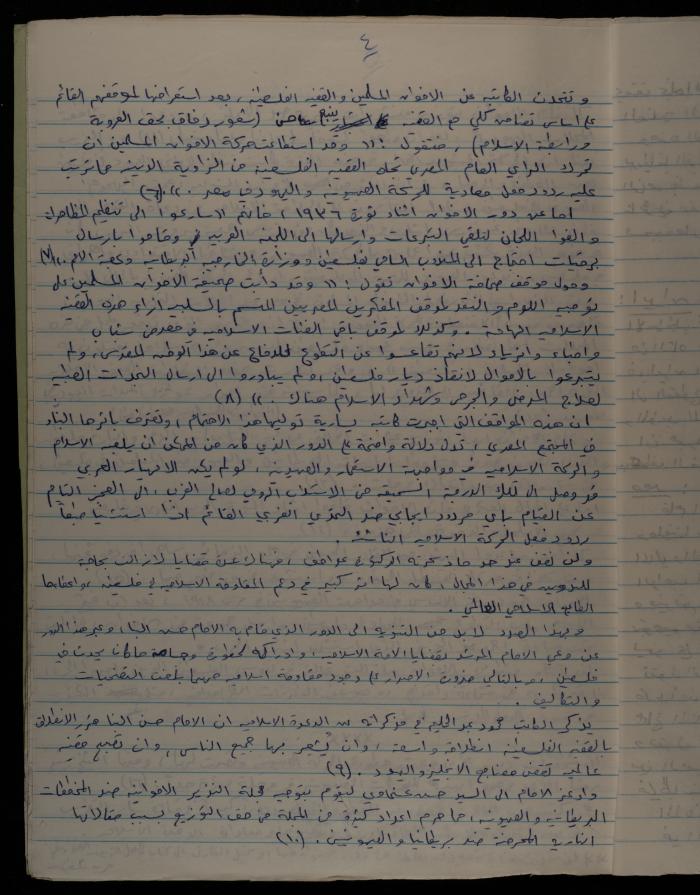 ٤
و تتحدث الكاتبة عن الاخوان المسلمين والقضية الفلسطينية ، بعد استعراضها لموقفهم القائم
على اساس تضامن كلي مع القضية ينبع من (شعور رفاق بحق العروبة
ورابطة الاسلام) ، فتقول : (( وقد استطاعت حركة الاخوان المسلمين ان
تحرك الرأي العام المصري تجاه القضية الفلسطينية من الزاوية الدينية مما ترتب
عليه ردود فعل معادية للحركة الصهيونية واليهود في مصر . )) (٦)
اما عن دور الاخوان اثناء ثورة ١٩٣٦ ، فانهم (( سارعوا الى تنظيم المظاهرات
والفوا اللجان لتلقي التبرعات وارسالها الى اللجنة العربية وقاموا بارسال
برقيات احتجاج الى المندوب السامي بفلسطين ووزارة الخارجية البريطانية وعصبة الامم . )) (٧)
وحول موقف صحافة الاخوان تقول : (( وقد دأبت صحيفة الاخوان المسلمين على
توجيه اللوم والنقد لموقف المفكرين المصريين المتسم بالسلبية ازاء هذه القضية
الاسلامية الهامة . وكذلك لموقف باقي الفئات الاسلامية في مصر من شباب
واطباء واثرياء لانهم تقاعسوا عن التطوع للدفاع عن هذا الوطن المقدس ، ولم
يتبرعوا بالاموال لانقاذ ديار فلسطين ، ولم يبادروا الى ارسال النجدات الطبية
لعلاج المرضى والجرحى وشهداء الاسلام هناك . )) (٨)
ان هذه المواقف التي اجبرت كاتبة يسارية توليها هذا الاهتمام ، وتعترف باثرها البناء
في المجتمع المصري ، تدل دلالة واضحة على الدور الذي كان من الممكن ان يلعبه الاسلام
والحركة الاسلامية في مواجهة الاستعمار والصهيونية ، لو لم يكن الانهيار العربي
قد وصل الى تلك الدرجة السحيقة من الاستلاب الروحي لصالح الغرب ، الى العجز التام
عن القيام بأي مردود ايجابي ضد التحدي الغربي القائم اذا استثنينا طبعا
ردود فعل الحركة الاسلامية الناشئة .
ولن نقف عند حد ما ذكرته الدكتورة عواطف ، فهناك عدة قضايا لازالت بحاجة
للتدوين في هذا المجال ، كان لها اثر كبير في دعم المقاومة الاسلامية في فلسطين ، واعطائها
الطابع الاسلامي العالمي .
وبهذا الصدد لا بد من التنويه الى الدور الذي قام به الامام حسن البنا ، وعبر هذا الدور
عن وعي الامام المرشد بقضايا الامة الاسلامية ، وادراكه لخطورة وجسامة ما كان يحدث في
فلسطين ، وبالتالي ضرورة الاصرار على وجود مقاومة اسلامية مهما بلغت التضحيات
والتكاليف .
يذكر الكاتب محمود عبد الحليم في مذكراته عن الدعوة الاسلامية ان الامام حسن البنا قرر الانطلاق
بالقضية الفلسطينية انطلاقة واسعة ، وان يُشعر بها جميع الناس ، وان تصبح قضية
عالمية تقض مضاجع الانجليز واليهود . (٩)
واوعز الامام الى السيد حسن عشماوي ليقوم بتوجيه مجلة النذير الاخوانية ضد المخططات
البريطانية والصهيونية ، مما حرم اعداد كثيرة من المجلة من حق التوزيع بسبب مقالاتها
النارية المحرضة ضد بريطانيا والصهيونيين . (١٠)